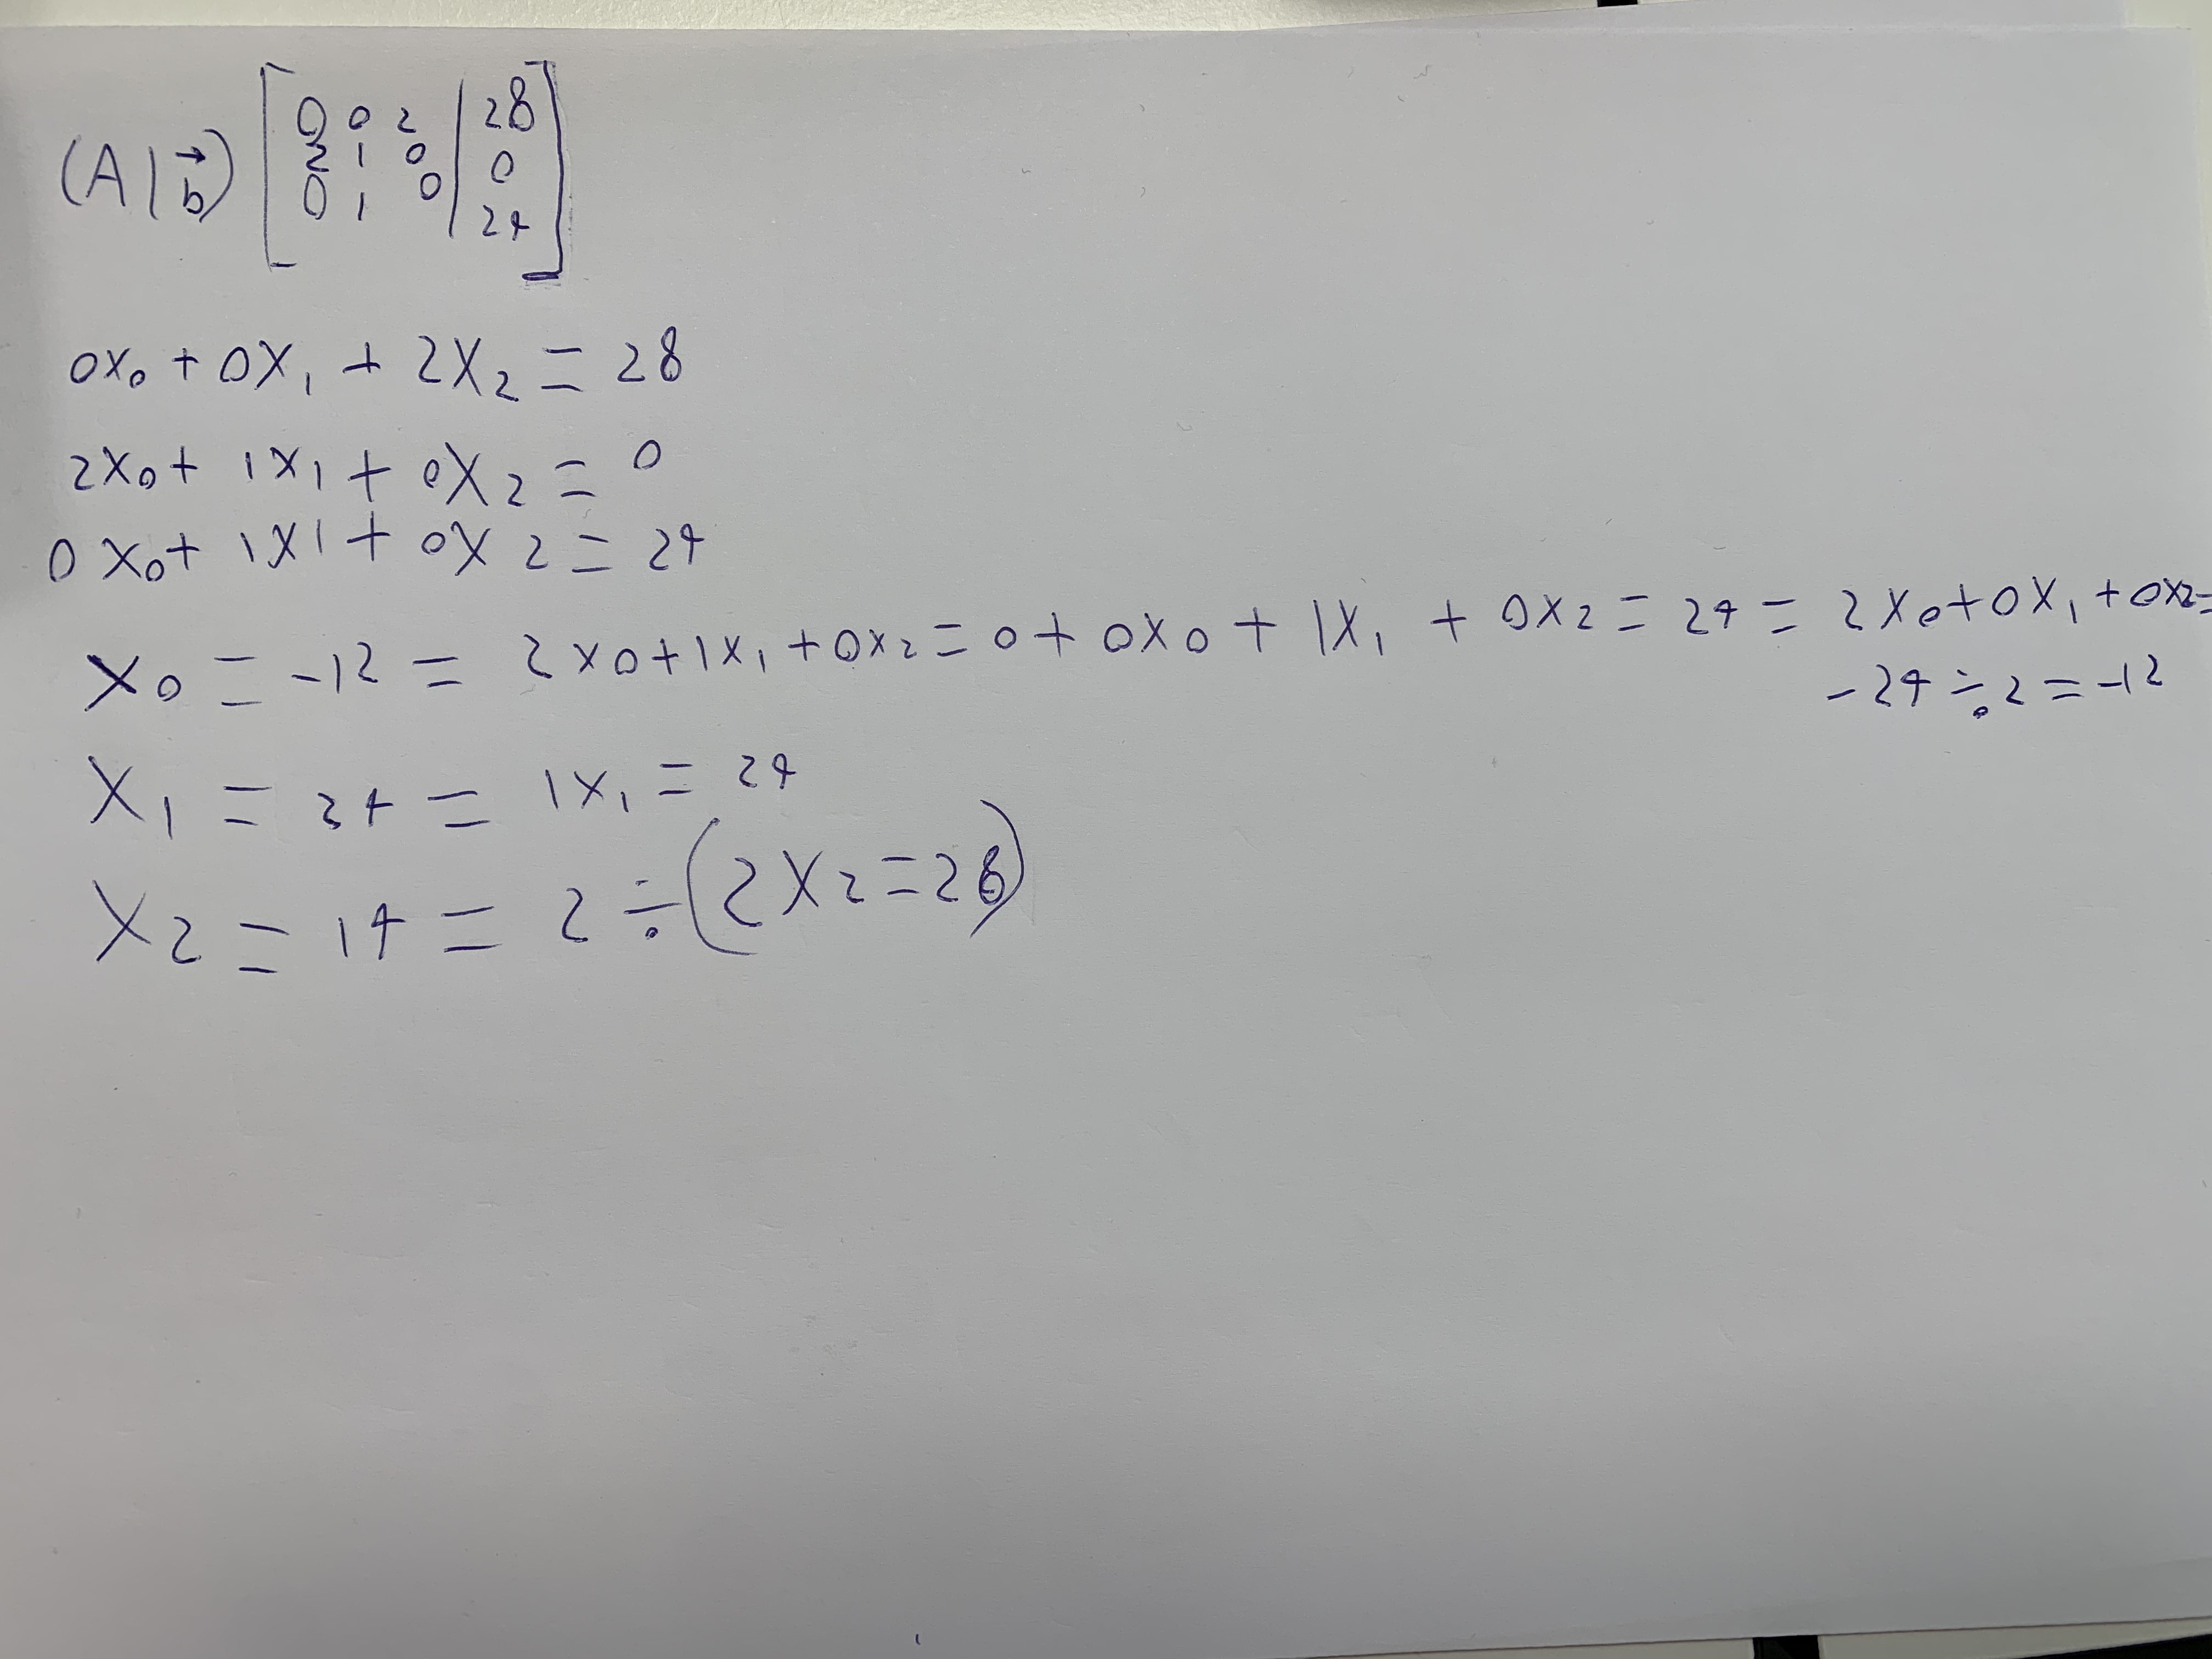 (A|b⃗) [ 0 0 2 | 28 ]
2 1 0 | 0
0 1 0 | 24
0x₀ + 0x₁ + 2x₂ = 28
2x₀ + 1x₁ + 0x₂ = 0
0x₀ + 1x1 + 0x2 = 24
x₀ = -12 = 2x₀ + 1x₁ + 0x₂ = 0 + 0x₀ + 1x₁ + 0x₂ = 24 = 2x₀ + 0x₁ + 0x₂ =
-24 ÷ 2 = -12
x₁ = 24 = 1x₁ = 24
x₂ = 14 = 2 ÷ (2x₂ = 28)